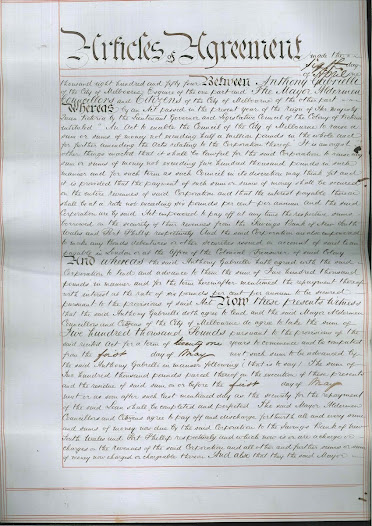 Articles of Agreement made the
day
thousand eight hundred and fifty four Between Anthony Gabrielli
of the City of Melbourne Esquire of the one part and The Mayor Aldermen
Councillors and Citizens of the City of Melbourne of the other part
Whereas by an Act passed in the present year of the Reign of Her Majesty
Queen Victoria by the Lieutenant Governor and Legislative Council of the Colony of Victoria
intituled "An Act to enable the Council of the City of Melbourne to raise a
sum or sums of money not exceeding half a million pounds in the whole and
for further amending the Acts relating to the Corporation thereof" It is amongst
other things enacted that it shall be lawful for the said Corporation to
sum or sums of money not exceeding five hundred thousand pounds in such
manner and for such term as such Council in its discretion may think fit and
it is provided that the payment of such sum or sums of money shall be secured
on the entire revenues of said Corporation and that the interest payable thereon
shall be at a rate not exceeding six pounds per cent per annum And the said
Corporation are by said Act empowered to pay off at any time the respective sums
borrowed on the security of their revenues from the Savings Bank of New South
Wales and Port Phillip respectively And the said Corporation are also empowered
to make any Bonds debentures or other securities issued on account of said loan
payable in London or at the Office of the Colonial Treasurer of said Colony
And whereas the said Anthony Gabrielli hath agreed with the said
Corporation to lend and advance to them the sum of Five hundred thousand
pounds in manner and for the term hereinafter mentioned the repayment thereof
with interest at the rate of six pounds per cent per annum to be secured
pursuant to the provisions of said Act Now these presents witness
that the said Anthony Gabrielli doth agree to lend and the said Mayor Aldermen
Councillors and Citizens of the City of Melbourne do agree to take the sum of
Five hundred thousand Pounds pursuant to the provisions of the
said recited Act for a term of twenty one years to commence and be computed
from the first day of May next such sum to be advanced by
the said Anthony Gabrielli in manner following (that is to say) The sum of
hundred thousand pounds parcel thereof on the execution of these presents
and the residue of said sum on or before the first day of May
next or as soon after such last mentioned day as the security for the repayment
of the said Loan shall be completed and perfected The said Mayor Aldermen
Councillors and Citizens agree to pay off and discharge forthwith all and every sum
and sums of money now due by the said Corporation to the Savings Bank of New
South Wales and Port Phillip respectively and which now is or are a charge or
charges on the revenues of the said Corporation and all other and further sums or sum
of money now charged or chargeable thereon And also that they the said Mayor